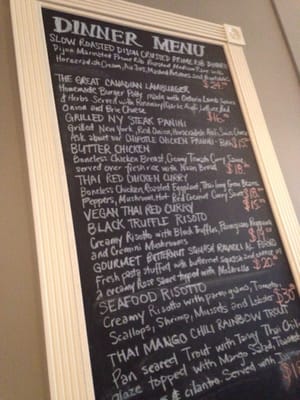 DINNER MENU
SLOW ROASTED DIJON CRUSTED PRIME RIB DINNER
Dijon Marinated Prime Rib Roasted Medium Rare with
Horseradish Cream, Au Jus, Mashed Potatoes and Vegetables
$24
THE GREAT CANADIAN LAMBURGER
Homemade Burger Patty made with Ontario Lamb
& Herbs Served with Rosemary Red Onion
Onion and Brie Cheese $16
GRILLED NY STEAK PANINI
Grilled New York, Red Onion, Horseradish Aioli, Swiss Cheese
Ask about our CHIPOTLE CHICKEN PANINI
BUTTER CHICKEN
Boneless Chicken Breast, Creamy Tomato Curry Sauce
served over fresh rice with Naan Bread $18
THAI RED CHICKEN CURRY
Boneless Chicken, Roasted Eggplant, Thai Long Green Beans,
Peppers, Mushroom, Hot Red Coconut Curry Sauce $18
VEGAN THAI RED CURRY $15
BLACK TRUFFLE RISOTO
Creamy Risotto with Black Truffles, Parmigiano Reggiano
and Cremini Mushrooms
GOURMET BUTTERNUT SQUASH RAVIOLI AL FORNO
Fresh pasta stuffed with butternut squash and
a creamy Rose sauce topped with Mozarella $20
SEAFOOD RISOTTO
Creamy Risotto with parmigiano, Tomato
Scallops, Shrimp, Mussels and Lobster $30
THAI MANGO CHILI RAINBOW TROUT
Pan seared Trout with Tangy Thai Chili
glaze topped with Mango Salad Toasted
& cilantro. Served with